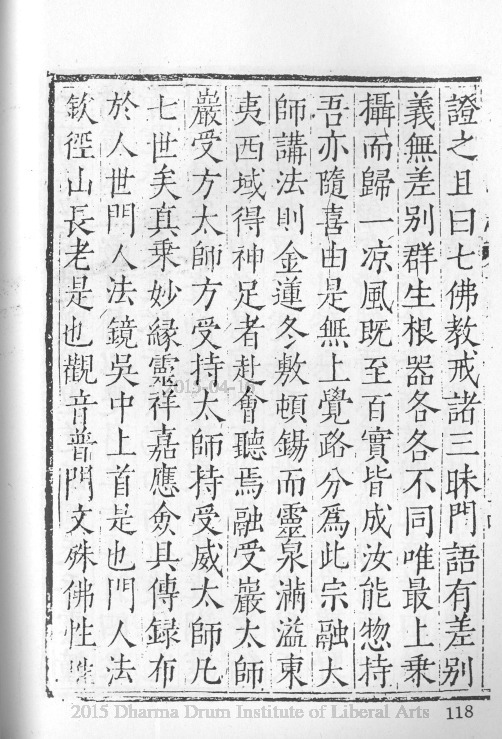 證之且曰七佛教戒諸三昧門語有差別
義無差別群生根器各各不同唯最上乘
攝而歸一凉風既至百實皆成汝能惣持
吾亦隨喜由是無上覺路分爲此宗融大
師講法則金蓮冬敷頓錫而靈泉滿溢東
夷西域得神足者赴會聽焉融受巖太師
巖受方太師方受持太師持受威太師凡
七世矣真乗妙縁靈祥嘉應僉具傳録布
於人世門人法鏡吳中上首是也門人法
欽徑山長老是也觀音普門文殊佛性
2015-04-16
2015 Dharma Drum Institute of Liberal Arts
118